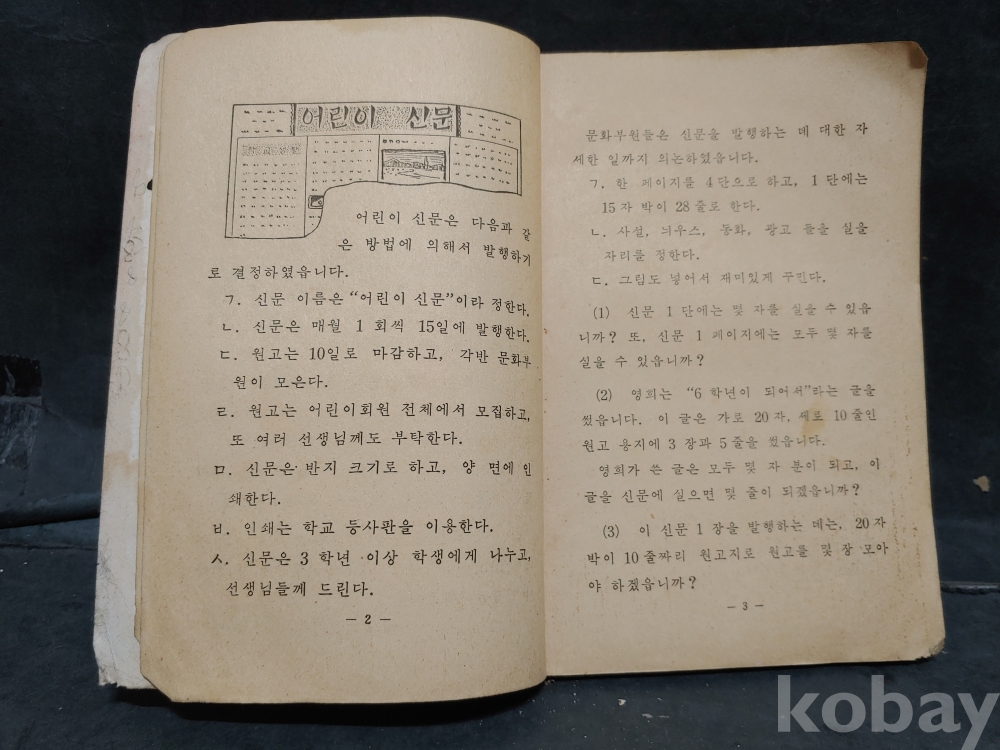 어린이 신문
어린이 신문은 다음과 같
은 방법에 의해서 발행하기
로 결정하였읍니다.
ㄱ. 신문 이름은 “어린이 신문”이라 정한다.
ㄴ. 신문은 매월 1 회씩 15일에 발행한다.
ㄷ. 원고는 10일로 마감하고, 각반 문화부
원이 모은다.
ㄹ. 원고는 어린이회원 전체에서 모집하고,
또 여러 선생님께도 부탁한다.
ㅁ. 신문은 반지 크기로 하고, 양 면에 인
쇄한다.
ㅂ. 인쇄는 학교 등사판을 이용한다.
ㅅ. 신문은 3 학년 이상 학생에게 나누고,
선생님들께 드린다.
— 2 —
문화부원들은 신문을 발행하는 데 대한 자
세한 일까지 의논하였읍니다.
ㄱ. 한 페이지를 4 단으로 하고, 1 단에는
15 자 박이 28 줄로 한다.
ㄴ. 사설, 늬우스, 동화, 광고 들을 실을
자리를 정한다.
ㄷ. 그림도 넣어서 재미있게 꾸민다.
(1) 신문 1 단에는 몇 자를 실을 수 있읍
니까? 또, 신문 1 페이지에는 모두 몇 자를
실을 수 있읍니까?
(2) 영희는 “6 학년이 되어서”라는 글을
썼읍니다. 이 글은 가로 20 자, 세로 10 줄인
원고 용지에 3 장과 5 줄을 썼읍니다.
영희가 쓴 글은 모두 몇 자 분이 되고, 이
글을 신문에 실으면 몇 줄이 되겠읍니까?
(3) 이 신문 1 장을 발행하는 데는, 20 자
박이 10 줄짜리 원고지로 원고를 몇 장 모아
야 하겠읍니까?
— 3 —
kobay